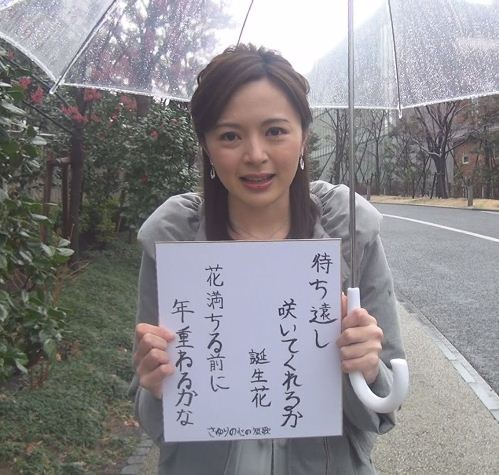 待ち遠し
咲いてくれるか
誕生花
花満ちる前に
年重ねるかな
さゆりの心の短歌